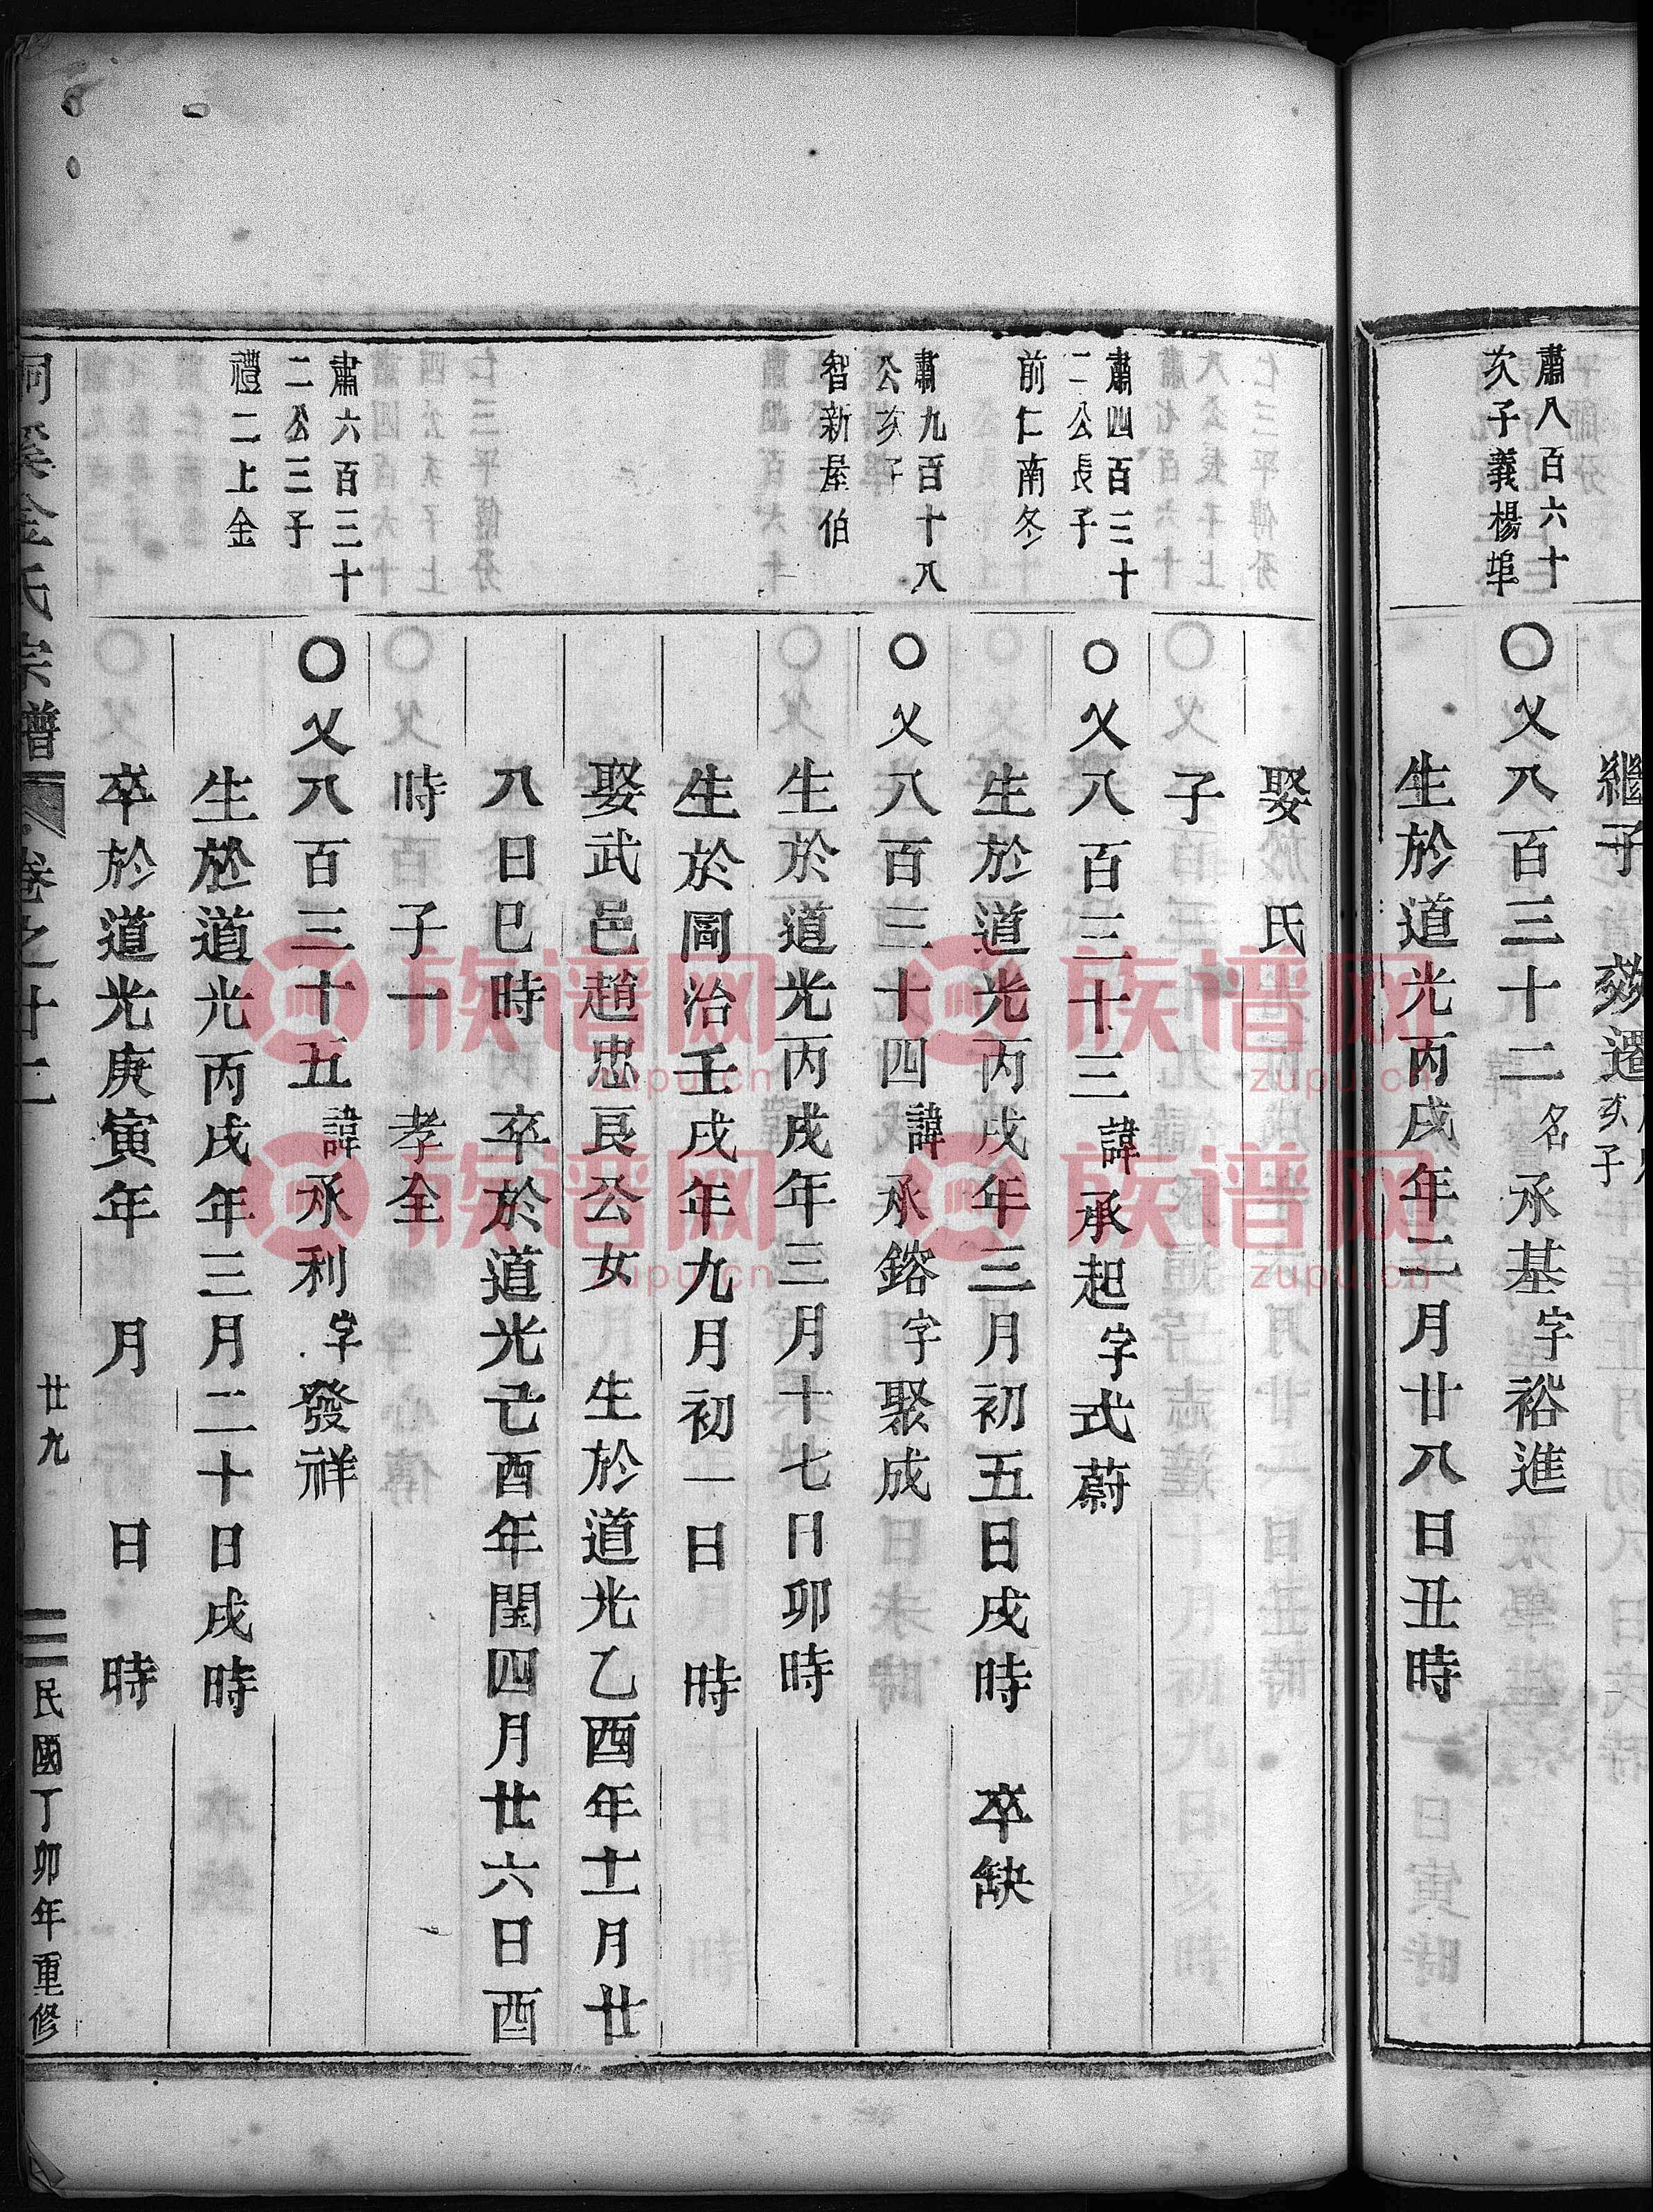 繼子　　遷亥子
肅八百六十
次子義楊埠
〇父八百三十二名承基字裕進
生於道光丙戌年二月廿八日丑時
娶　氏
子
肅四百三十
二公長子
前仁南冬
〇父八百三十三諱承起字式蔚
生於道光丙戌年三月初五日戌時　卒缺
肅九百十八
公亥子
智新屋伯
〇父八百三十四諱承鎔字聚成
生於道光丙戌年三月十七日卯時
生於同治壬戌年九月初一日　時
娶武邑趙忠良公女　生於道光乙酉年十一月廿
八日巳時　卒於道光己酉年閏四月廿六日酉
時　子一　孝全
肅六百三十
二公三子
禮二上金
〇父八百三十五諱承利字發祥
生於道光丙戌年三月二十日戌時
卒於道光庚寅年　月　日　時
桐溪金氏宗譜　卷之廿二　廿九　民國丁卯年重修
族谱网
zupu.cn
族谱网
zupu.cn
族谱网
zupu.cn
族谱网
zupu.cn